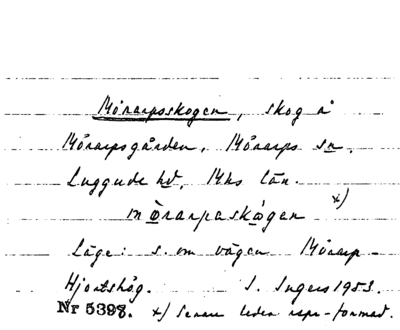 Mörarpsskogen, skog å
Mörarpsgården, Mörarps sn,
Luggude hd, Mhs län.
mòrarpaskógan x)
Läge: s. om vägen Mörarp -
Hjortshög. S. Ingers 1953.
Nr 5398. x) Senare leden repr-formad.